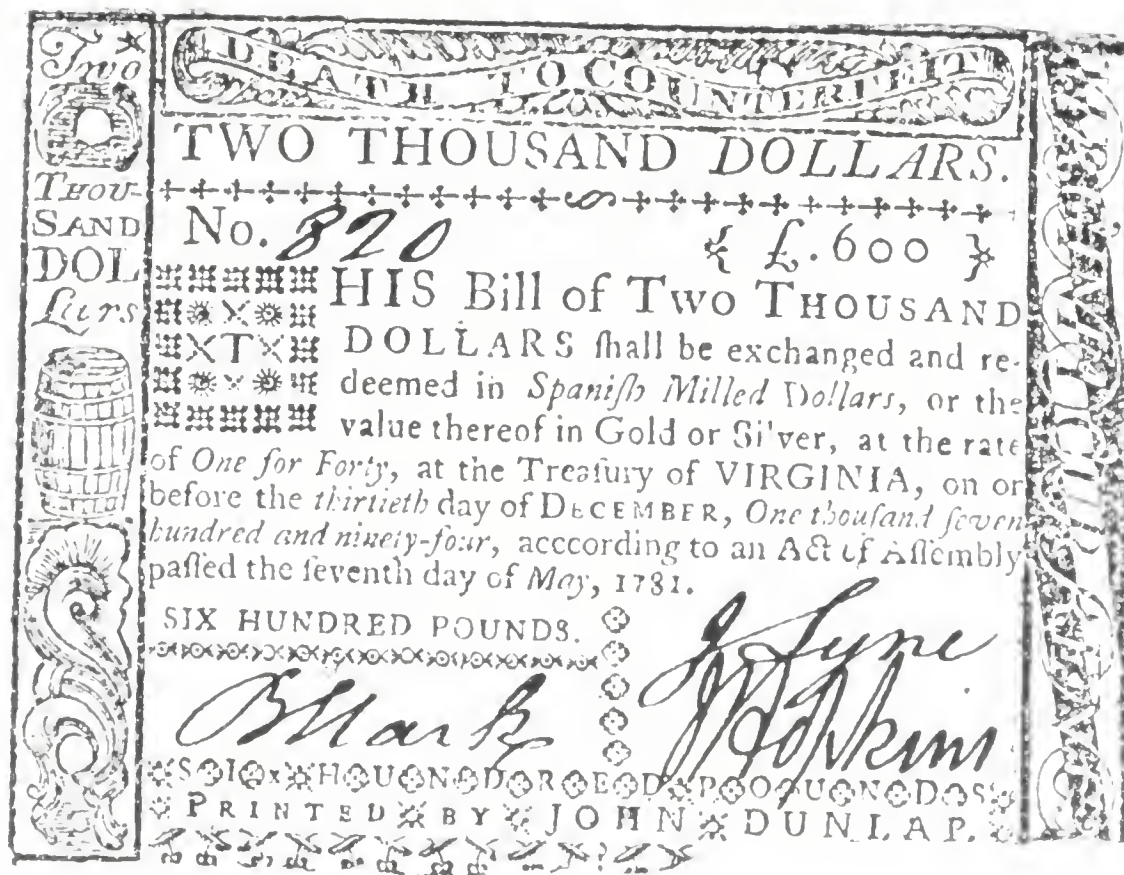 Two
THOU-
SAND
DOL
Lars
DEATH TO COUNTERFEIT
TWO THOUSAND DOLLARS.
No. 820 { £.600 }
THIS Bill of TWO THOUSAND
DOLLARS ſhall be exchanged and re-
deemed in Spaniſh Milled Dollars, or the
value thereof in Gold or Silver, at the rate
of One for Forty, at the Treaſury of VIRGINIA, on or
before the thirtieth day of DECEMBER, One thouſand ſeven
hundred and ninety-four, acccording to an Act of Aſſembly
paſſed the ſeventh day of May, 1781.
SIX HUNDRED POUNDS.
J Lyne
B Stark
J Hopkins
SIx HUNDRED POUNDS
PRINTED BY JOHN DUNLAP.